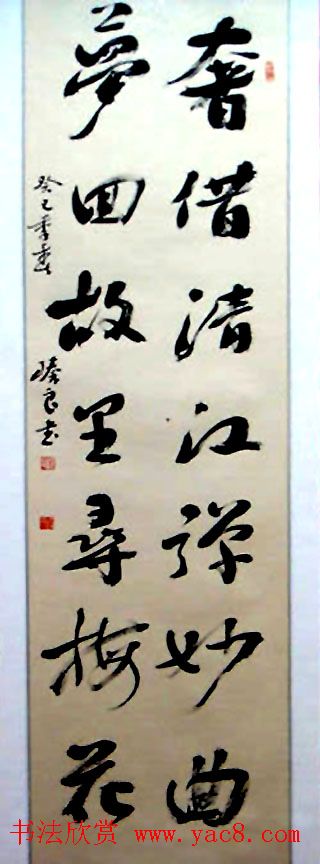 奢借清江弹妙曲
梦回故里寻梅花
癸巳季春
良书
书法欣赏 www.yac8.com